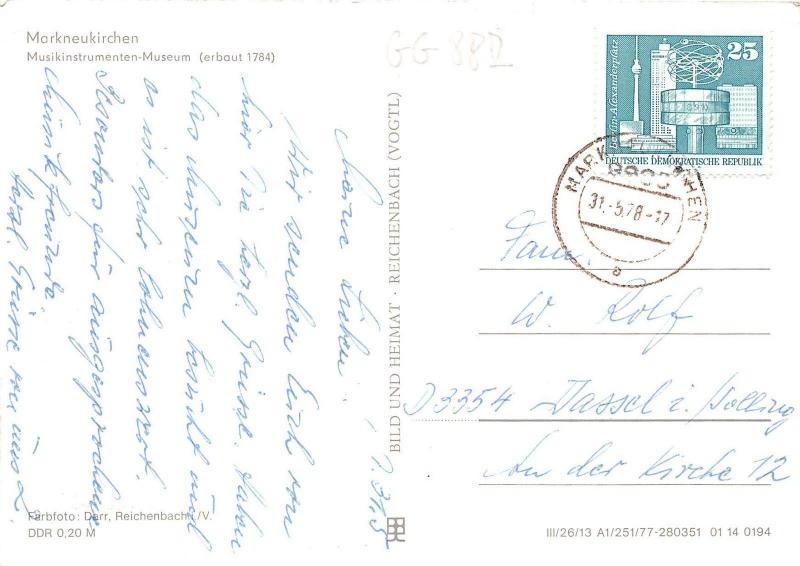 Markneukirchen
Musikinstrumenten-Museum (erbaut 1784)
GG 88
25
Berlin-Alexanderplatz
DEUTSCHE DEMOKRATISCHE REPUBLIK
MARKNEUKIRCHEN
31.-5.78-17
a
31.5.
Meine Lieben!
Wir senden Euch von
hier die herzl. Grüsse. Haben
das Museum besucht und
es ist sehr lohnenswert.
Besonders für ausgesprochene
herzl. Grüsse von uns
BILD UND HEIMAT · REICHENBACH (VOGTL)
Fam.
W. Rolf
D 3354 Dassel i/Solling
An der Kirche 12
Farbfoto: Darr, Reichenbach i. V.
DDR 0,20 M
III/26/13 A1/251/77-280351 01 14 0194